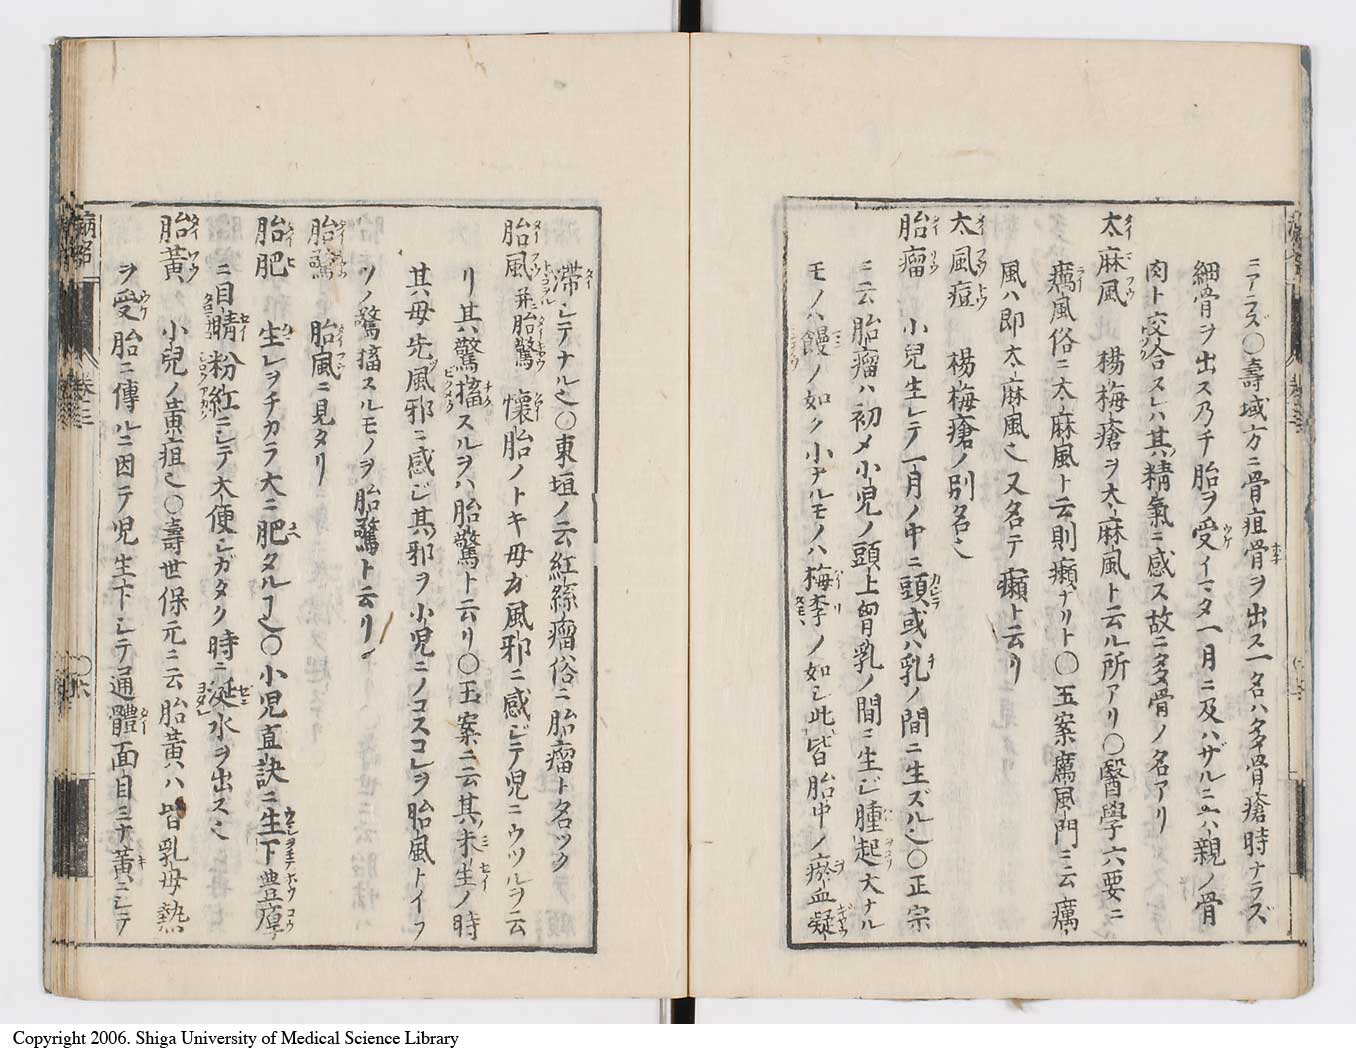 ニアラズ〇壽域方ニ骨疽骨ヲ出ス一名ハ多骨瘡時ナラズ
細骨ヲ出ス乃チ胎ヲ受イマタ一月ニ及ハザルニ六親ノ骨
肉ト交合スレハ其精氣ニ感ス故ニ多骨ノ名アリ
大麻風 楊梅瘡ヲ大麻風ト云ル所アリ〇醫學六要ニ
癘風俗ニ大麻風ト云則癩ナリト〇玉案癘風門ニ云癘
風ハ即大麻風也又名テ癩ト云リ
大風痘 楊梅瘡ノ別名也
胎瘤 小兒生レテ一月ノ中ニ頭或ハ乳ノ間ニ生ズル也〇正宗
ニ云胎瘤ハ初メ小児ノ頭上胷乳ノ間ニ生シ腫起大ナル
モノハ饅ノ如ク小ナルモノハ梅李ノ如シ此皆胎中ノ瘀血凝
滞シテナル也〇東垣ノ云紅絲瘤俗ニ胎瘤ト名ツク
胎風并ニ胎驚 懐胎ノトキ母カ風邪ニ感シテ児ニウツルヲ云
リ其驚搐スルヲハ胎驚ト云リ〇玉案ニ云其未生ノ時
其母先風邪ニ感シ其邪ヲ小児ニノコスコレヲ胎風トイフ
ツノ驚搐スルモノヲ胎驚ト云リ
胎驚 胎風ニ見タリ
胎肥 生レヲチカラ大ニ肥タルヿ也〇小児直訣ニ生下豊厚
ニ目睛粉紅ニシテ大便シガタク時ニ涎水ヲ出ス也
胎黃 小兒ノ黄疸也〇壽世保元ニ云胎黄ハ皆乳母熱
ヲ受胎ニ傳ルニ因テ児生下シテ通體面目ミナ黄ニシテ
病名
巻三
〇六
Copyright 2006. Shiga University of Medical Science Library